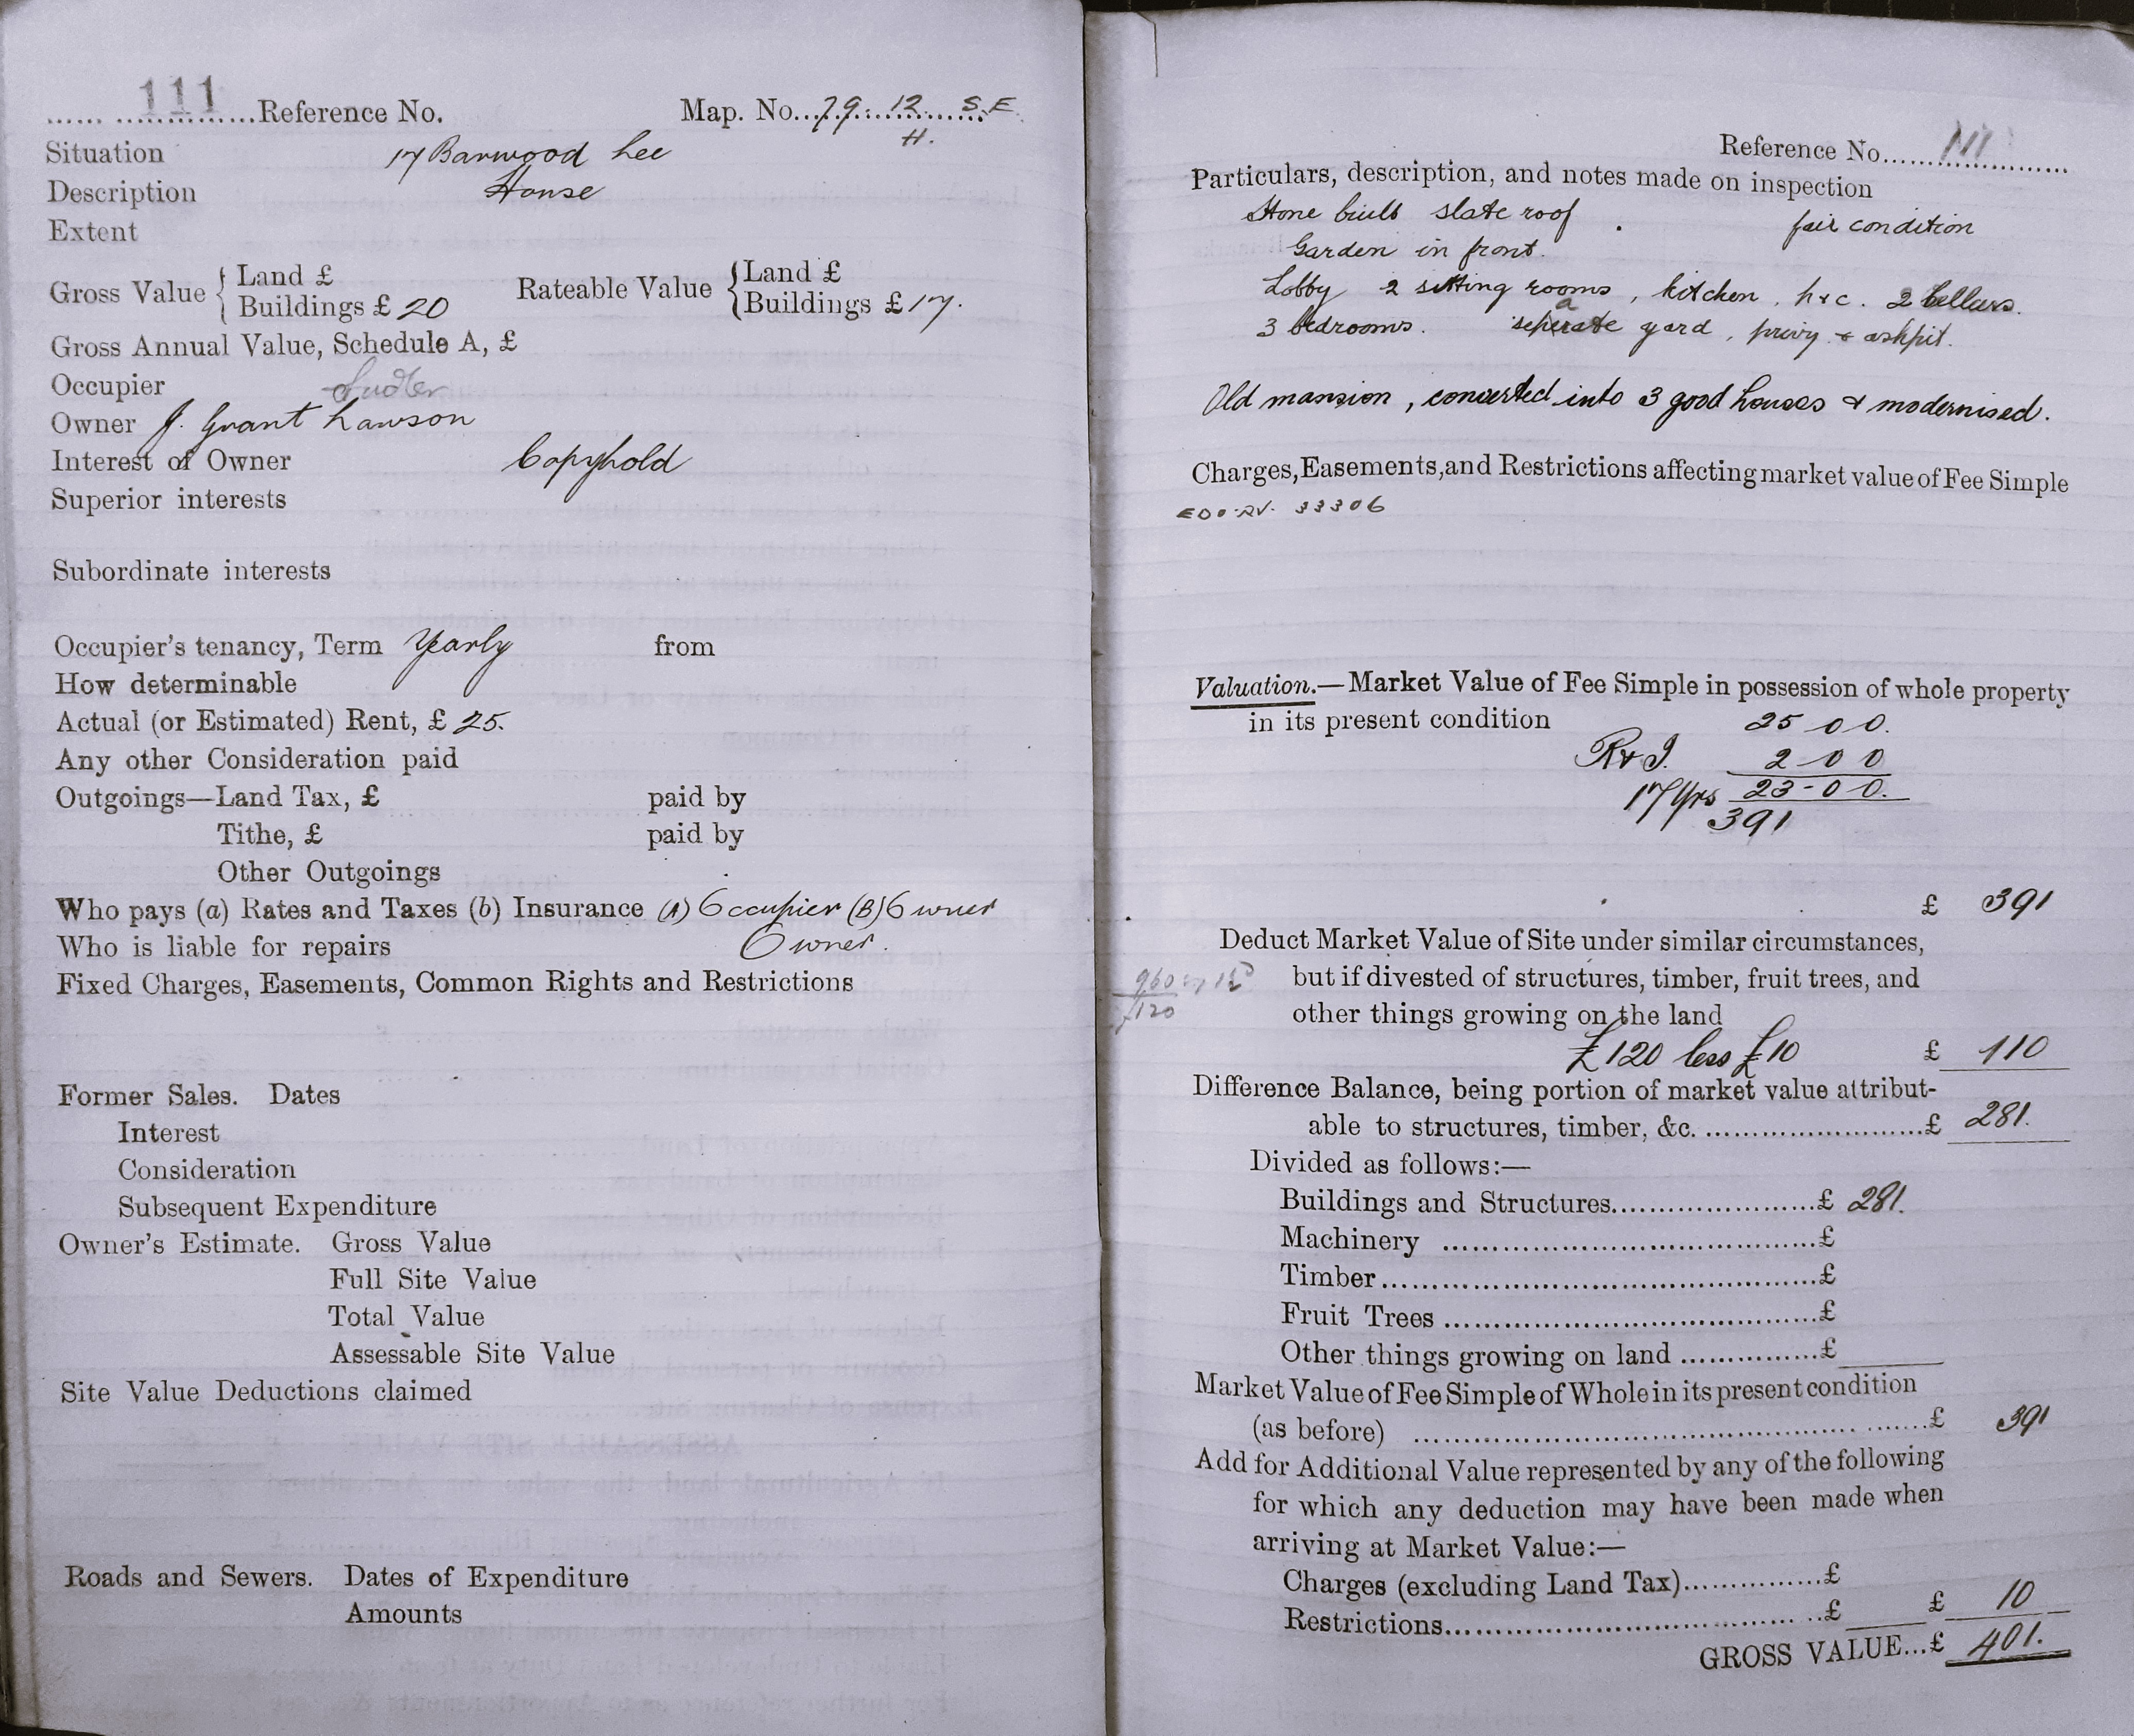 111 Reference No. Map. No. 79. 12. S.E.
H.
Situation 17 Barwood Lee
Description House
Extent
Gross Value { Land £ Rateable Value { Land £
Buildings £ 20 Buildings £ 17.
Gross Annual Value, Schedule A, £
Occupier
Owner J. Grant Lawson
Interest of Owner Copyhold
Superior interests
Subordinate interests
Occupier's tenancy, Term Yearly from
How determinable
Actual (or Estimated) Rent, £ 25.
Any other Consideration paid
Outgoings—Land Tax, £ paid by
Tithe, £ paid by
Other Outgoings
Who pays (a) Rates and Taxes (b) Insurance (A) Occupier (B) Owner
Who is liable for repairs Owner.
Fixed Charges, Easements, Common Rights and Restrictions
Former Sales. Dates
Interest
Consideration
Subsequent Expenditure
Owner's Estimate. Gross Value
Full Site Value
Total Value
Assessable Site Value
Site Value Deductions claimed
Roads and Sewers. Dates of Expenditure
Amounts
Reference No. 111
Particulars, description, and notes made on inspection
Stone built slate roof. fair condition
Garden in front.
Lobby 2 sitting rooms, kitchen, h & c. 2 Cellars.
3 bedrooms. separate yard, privy & ashpit.
Old mansion, converted into 3 good houses & modernised.
Charges, Easements, and Restrictions affecting market value of Fee Simple
33306
Valuation.—Market Value of Fee Simple in possession of whole property
in its present condition 25 0 0.
R & I. 2 0 0
17 Yrs 23-0 0.
391
£ 391
Deduct Market Value of Site under similar circumstances,
960 but if divested of structures, timber, fruit trees, and
120 other things growing on the land
£120 less £10 £ 110
Difference Balance, being portion of market value attribut-
able to structures, timber, &c. £ 281.
Divided as follows:—
Buildings and Structures £ 281.
Machinery £
Timber £
Fruit Trees £
Other things growing on land £
Market Value of Fee Simple of Whole in its present condition
(as before) £ 391
Add for Additional Value represented by any of the following
for which any deduction may have been made when
arriving at Market Value:—
Charges (excluding Land Tax) £
Restrictions £ £ 10
GROSS VALUE...£ 401.